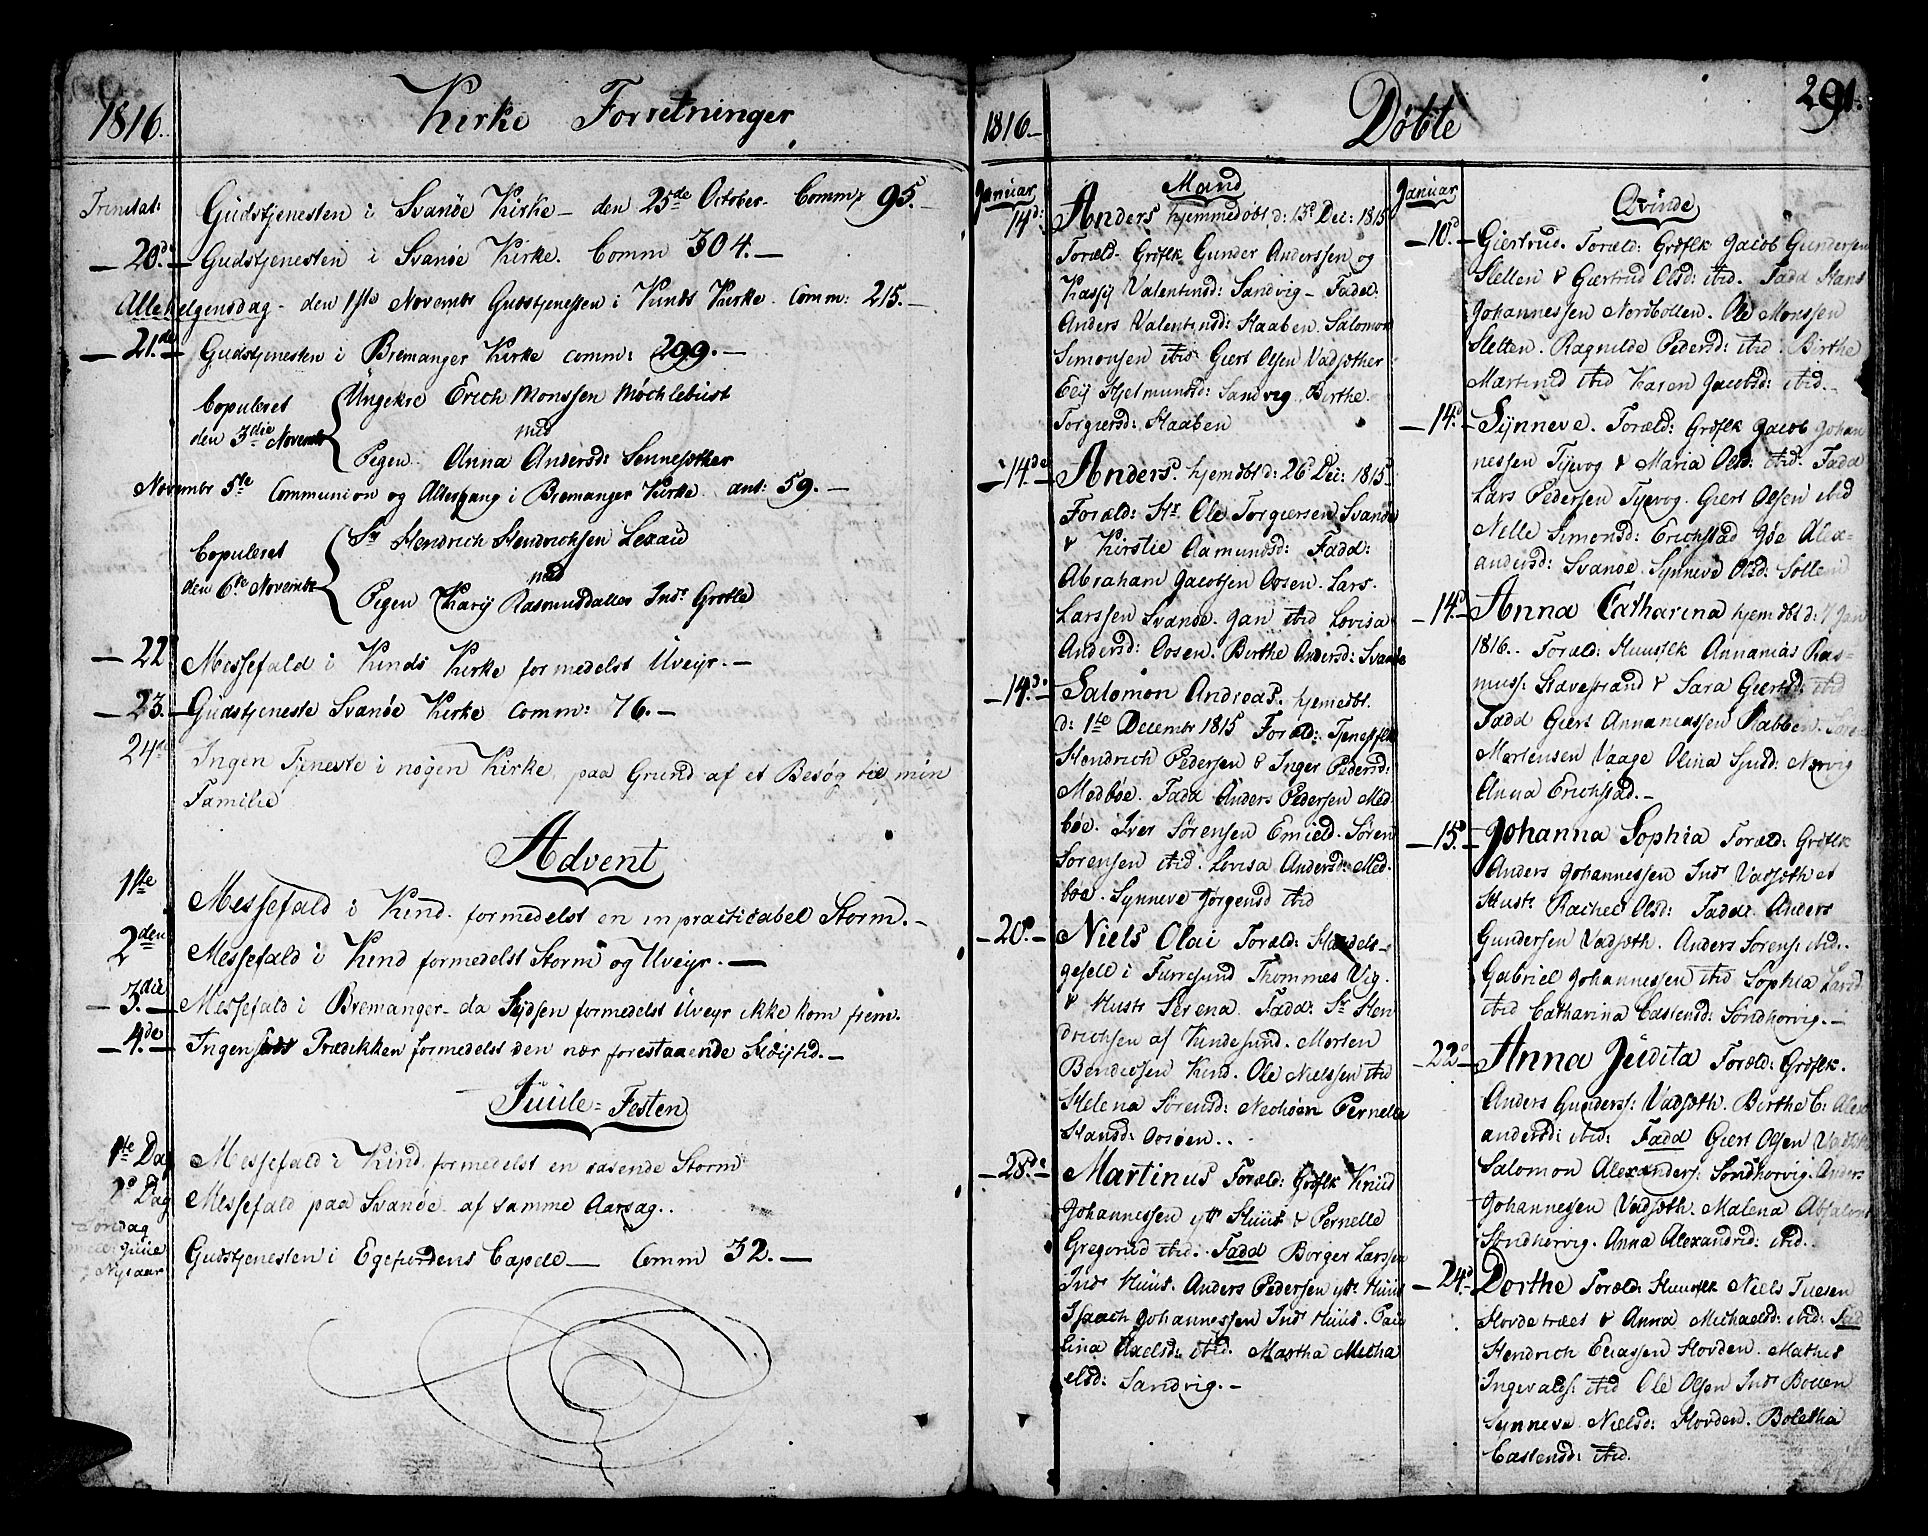 1816.
Kirke Forretninger
Trinitat:
Gudstjenesten i Svanøe Kirke - den 25de October. Comm: 95.-
- 20.de Gudstjenesten i Svanøe Kirke. Comm 304.-
Allehelgensdag - den 1ste Novembr Gudstjenesten i Kinds Kirke. Comm: 215.-
- 21.de Gudstjenesten i Bremanger Kirke comm: 299.-
Copuleret
den 3die Novembr
Ungekre Erich Monssen Møchlebust
med
Pigen Anna Andersd: Sennesøther
Novembr 5te Communion og Altergang i Bremanger Kirke. ant: 59.-
Copuleret
den 6te Novembr
Sr Hendrich Hendrichsen Lexau
med
Pigen Karij Rasmusdatter Indr Grotle
- 22. Messefald i Kinds Kirke formedelst Uveyr.-
- 23.- Gudstjeneste Svanøe Kirke comm: 76.-
24de Ingen Tjeneste i nogen Kirke, paa Grund af et Besøg til min
Familie
Advent
1ste Messefald i Kind. formedelst en inpracticabel Storm.-
2den Messefald i Kind formedelst Storm og Uveyr.-
- 3.die Messefald i Bremanger - da Skydsen formedelst Uveyr ikke kom frem.
- 4.de Ingen Prædikken formedelst den nær forestaaende Høijtid.-
Juule-Festen
1ste Dag Messefald i Kind formedelst en rasende Storm
2d Dag Messefald paa Svanøe af samme Aarsag..
Søndag
mell: Juule
og Nytaar
Gudstjenesten i Egefiordens Capele - Comm 32.-
1816.-
Døbte
291.
Januar
Mand
14d: Anders hjemmedøbt d: 13d Dec: 1815
Foræld. Grdflk Gunder Anderssen og
Kassij Valentinsd: Sandvig - Fadd:
Anders Valentinsd: Haaben. Salomon
Simonsen ibid. Giert Olsen Vadsøther
Elij Hjelmundsd: Sandvig. Birthe
Torgiersd: Haaben
- 14.de Anders. hjemdbt d: 26d Dec: 1815
Foræld: Hr. Ole Torgiersen Svanøe
& Kirstie Aamundsd: Fadd:
Abraham Jacobsen Oosen. Lars
Larssen Svanøe. Jan ibid Lovisa
Andersd: Oosen. Birthe Andersd: Svanøe
- 14.de Salomon Andreas. hjemdbt.
d: 1te Decembr 1815 Foræld: Tjenestflk
Hendrich Pedersen & Inger Pedersd:
Medbøe. Fadd Anders Pedersen Med-
bøe. Iver Sørensen Emild. Søren
Sørensen ibid. Lovisa Andersd: Med-
boe. Synneve Jørgensd ibid
- 20.d - Niels Olai Foræld: Handels-
gefeld i Furresund Thommes Vig.
& Hustr Serena. Fadd: Sr Hen
drichsen af Kindesund. Morten
Bendixsen Kind. Ole Nielssen ibid
Helena Sørensd: Nechøen Pernelle
Hansd: Oosøen..
- 28.de Martinus Foræld: Grdflk Knud
Johannessen yttr Huus & Pernelle
Gregorid ibid. Fadd Borger Larssen
Indr Huus. Anders Pedersen yttr Huus
Isaach Johannessen Indr Huus. Pau
lina Axelsd: ibid. Martha Micha
elsd: Sandvig.-
Januar
Qvinde
- 10.d - Giertrud. Foræld: Grdflk Jacob Gundersen
Sletten & Giertrud Olsd: ibid. Fadd Hans
Johannessen Nordbotten. Ole Monssen
Sletten. Ragnilde Pedersd: ibid. Birthe
Martinid ibid Karen Jacobsd: ibid.
- 14.d Synneve. Foræld: Grdflk Jacob Johan
nessen Tijevog & Maria Olsd: ibid. Fadd
Lars Pedersen Tyevog. Giert Olsen ibid
Nille Simonsd: Erichstad Gøe Alex-
andersd: Svanøe. Synneve Olsd: Solhem
- 14.d Anna Catharina hjemdbt d: 7 Jan
1816.. Foræld: Huusflk Annanias Ras-
muss: Stavestrand & Sara Giertsd: ibid
Fadd Giert Annaniassen Stabben. Søren
Mortensen Vaage Olina Sjusd: Norvig
Anna Erichstad.-
- 15.d Johanna Sophia Foræld: Grdflk
Anders Johannessen Indr Vadsøth et
Hustr Rachel Olsd: Fadd: Anders
Gundersen Vadsøth. Anders Sørens: ibid..
Gabriel Johannessen ibid Sophia Larsd
ibid Catharina Castensd: Søndhorvig.-
- 22d - Anna Judita Foræld: Grdflk.
Anders Gunderss: Vadsøth. Birthe C: Alex
andersd: ibid: Fadd Giert Olsen Vadsøth
Salomon Alexanders: Søndhorvig. Anders
Johannessen Vadsøth. Malena Absalons
Søndhorvig. Anna Alexandrid: ibid.
- 24.d Dorthe Foræld: Huusflk Niels Tuesen
Hovdetræet & Anna Michaelsd: ibid: Fad
Hendrich Eliassen Hovden. Mathis
Ingevalds: ibid Ole Olsen Indr Botten
Synneve Nielsd: Hovden. Boletha
Castensd: ibid.